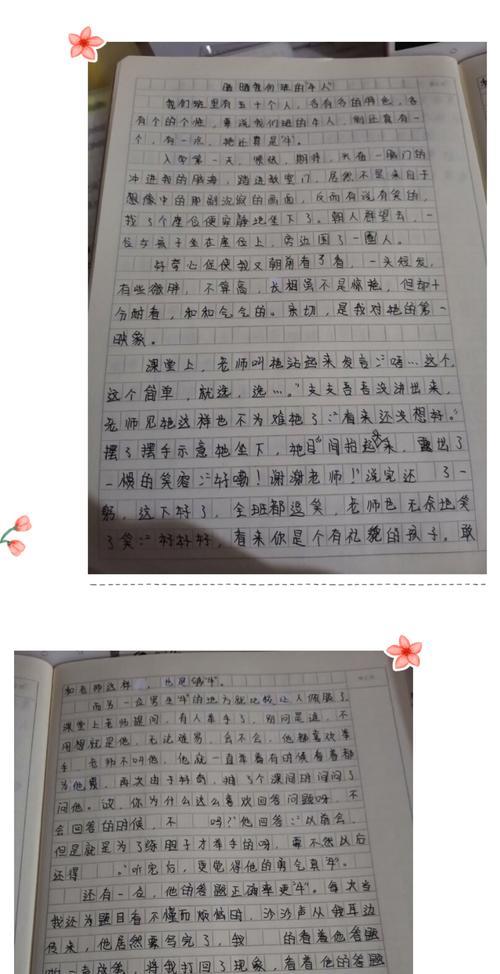 晒晒我们班的"牛人"
我们班里有五十个人，各有各的特色，各
有个的个性，要说我们班的牛人，别还真有一
个，有一次，她还算是"牛"。
入学第一天，慌张，期待，
冲进我的脑海，踏进教室门，居然不是来自于
想像中的那副沉寂的画面，反而有说有笑的，
找了个座位便安静地坐下了。朝人群望去，一
位女孩子坐在座位上，旁边围了一圈人。
好奇心促使我又朝前看了看，一头短发，
有些微胖，不算高，长相虽不是惊艳，但却十
分耐看，和和气气的。亲切，是我对她的第一
映象。
课堂上，老师叫她站起来发言："唔…这个，
这个简单，就选，选…。"支支吾吾没讲出来，
老师见她这样也不为难她了："看来还没想好。"
摆了摆手示意她坐下，她目间抬起来，露出了
一惯的笑容："好嘞！谢谢老师！"说完还 了一
躬，这下好了，全班都逗笑，老师也无奈地笑
了笑："好好好，看来你是个有礼貌的孩子。敢
和老师这样 ，也是够"牛"。
而另一位男生"牛"的地方就比较让人佩服了，
课堂上老师提问，有人举手了，别问是谁，不
用想就是他，无论难易，会不会，他都喜欢举
手，老师不叫他，他就一直举着有时候看着都
为他 ，再次由于好奇，抽了个课间时间问了
问他。诶，你为什么这么喜欢回答问题呀，不
会回答的时候，不 吗？"他回答："从前会，
但是就是为了练胆子才举手的呀，要不然以后
还得 。"听完后，更觉得他的勇气真"牛"。
还有一点，他的答题正确率更"牛"。每次当
我还为题目看不懂而烦恼时，沙沙声从我耳边
传来，他居然要写完了，我 的看着他答题
将我打回了现象，看着他的答题